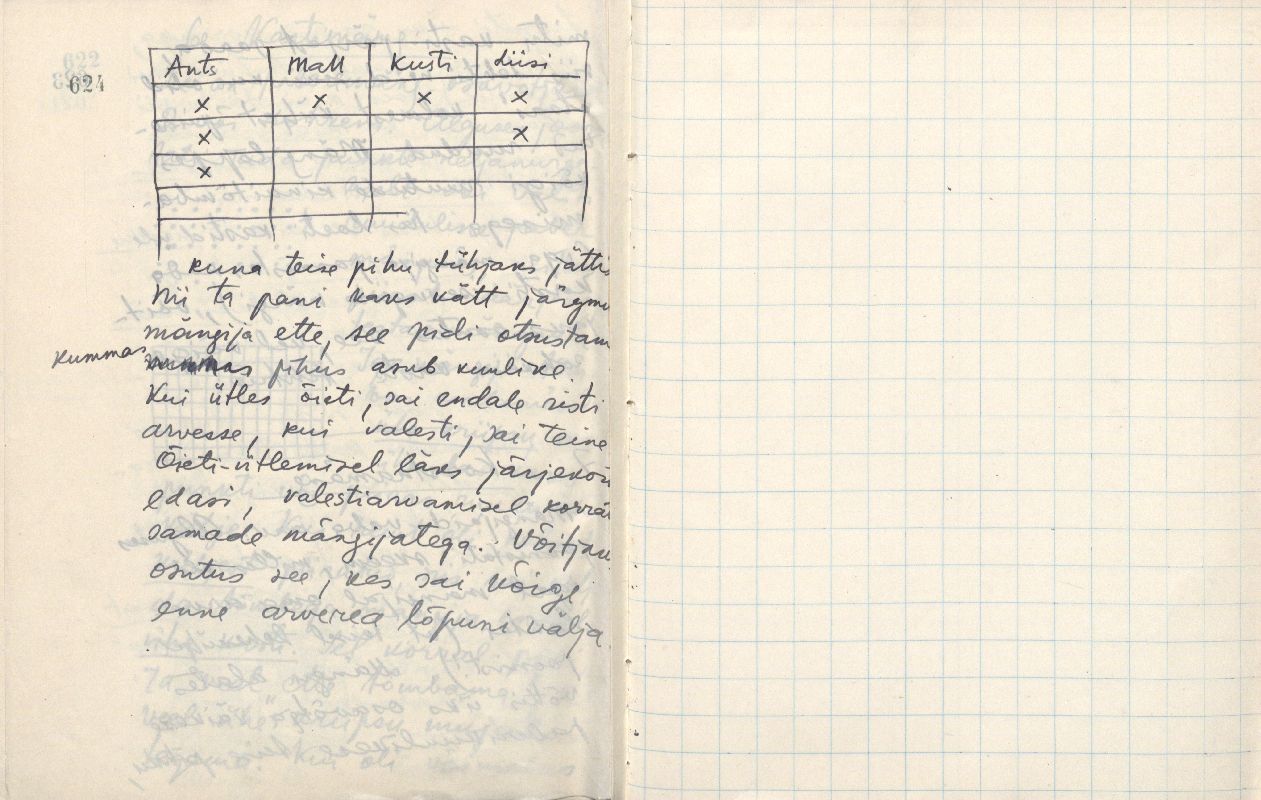 624
Ants Mall Kusti Liisi
x x x x
x x
x
kuna teise pihu tühjaks jättis
Nii ta pani kaks kätt järgmi
mängija ette, see pidi otsustam
kummas
pihus asub kuulike.
Kui ütles õieti, sai endale risti
arvesse, kui valesti, sai teine
Õieti-ütlemisel läks järjekor
edasi, valestiarvamisel korrat
samade mängijatega. Võitjaks
osutus see, kes sai kõige
enne arverea lõpuni välja.